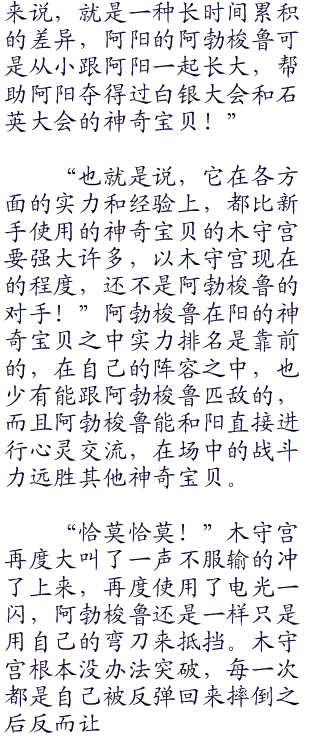 来说，就是一种长时间累积
的差异，阿阳的阿勃梭鲁可
是从小跟阿阳一起长大，帮
助阿阳夺得过白银大会和石
英大会的神奇宝贝！”
“也就是说，它在各方
面的实力和经验上，都比新
手使用的神奇宝贝的木守宫
要强大许多，以木守宫现在
的程度，还不是阿勃梭鲁的
对手！”阿勃梭鲁在阳的神
奇宝贝之中实力排名是靠前
的，在自己的阵容之中，也
少有能跟阿勃梭鲁匹敌的，
而且阿勃梭鲁能和阳直接进
行心灵交流，在场中的战斗
力远胜其他神奇宝贝。
“恰莫恰莫！”木守宫
再度大叫了一声不服输的冲
了上来，再度使用了电光一
闪，阿勃梭鲁还是一样只是
用自己的弯刀来抵挡。木守
宫根本没办法突破，每一次
都是自己被反弹回来摔倒之
后反而让